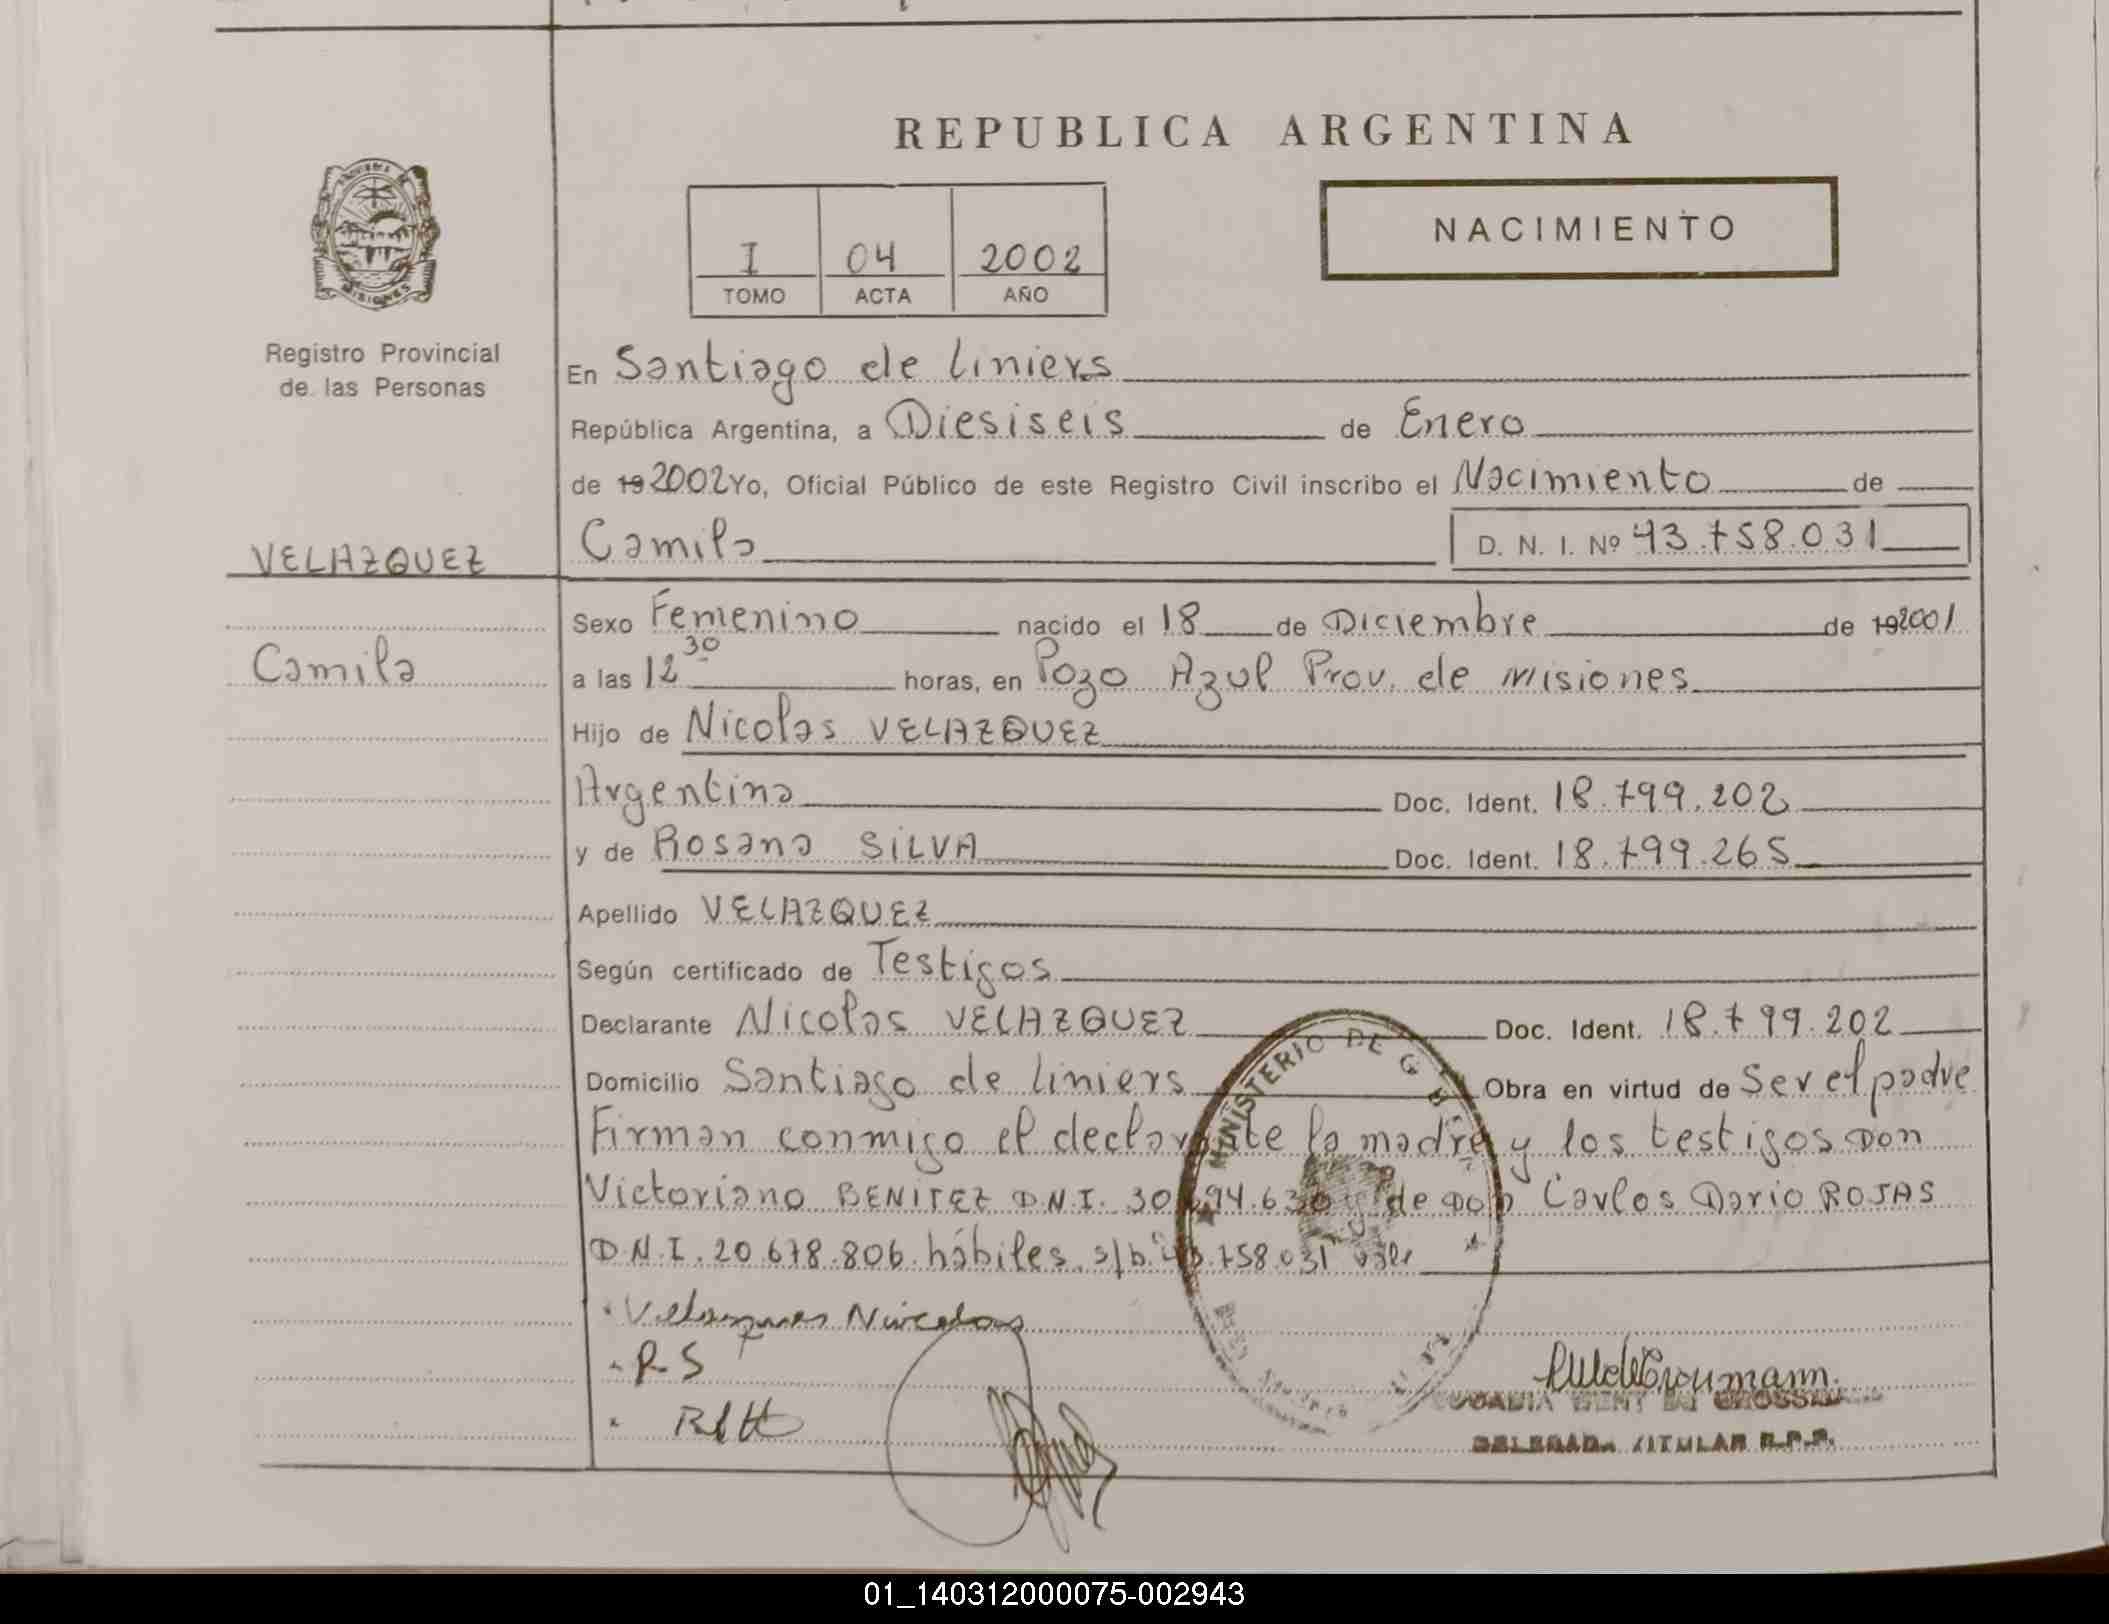 REPUBLICA ARGENTINA
NACIMIENTO
I 04 2002
TOMO ACTA AÑO
MISIONES
Registro Provincial
de las Personas
En Santiago de Liniers
República Argentina, a Diesiseis de Enero
de 19 2002 Yo, Oficial Público de este Registro Civil inscribo el Nacimiento de
VELAZQUEZ
Camila D. N. I. Nº 43.758.031
Sexo Femenino nacido el 18 de Diciembre de 19 2001
Camila
a las 12 30 horas, en Pozo Azul Prov. de Misiones
Hijo de Nicolas VELAZQUEZ
Argentina Doc. Ident. 18.799.202
y de Rosana SILVA Doc. Ident. 18.799.265
Apellido VELAZQUEZ
Según certificado de Testigos
Declarante Nicolas VELAZQUEZ Doc. Ident. 18.799.202
Domicilio Santiago de Liniers Obra en virtud de Ser el padre
Firman conmigo el declarante la madre y los testigos Don
Victoriano BENITEZ D.N.I. y de Don Carlos Dario ROJAS
D.N.I. 20.678.806 hábiles. s/b. 43.758.031 vale
MINISTERIO DE
Velazquez Nicolas
R S
DELEGADA TITULAR R.P.P.
01_140312000075-002943